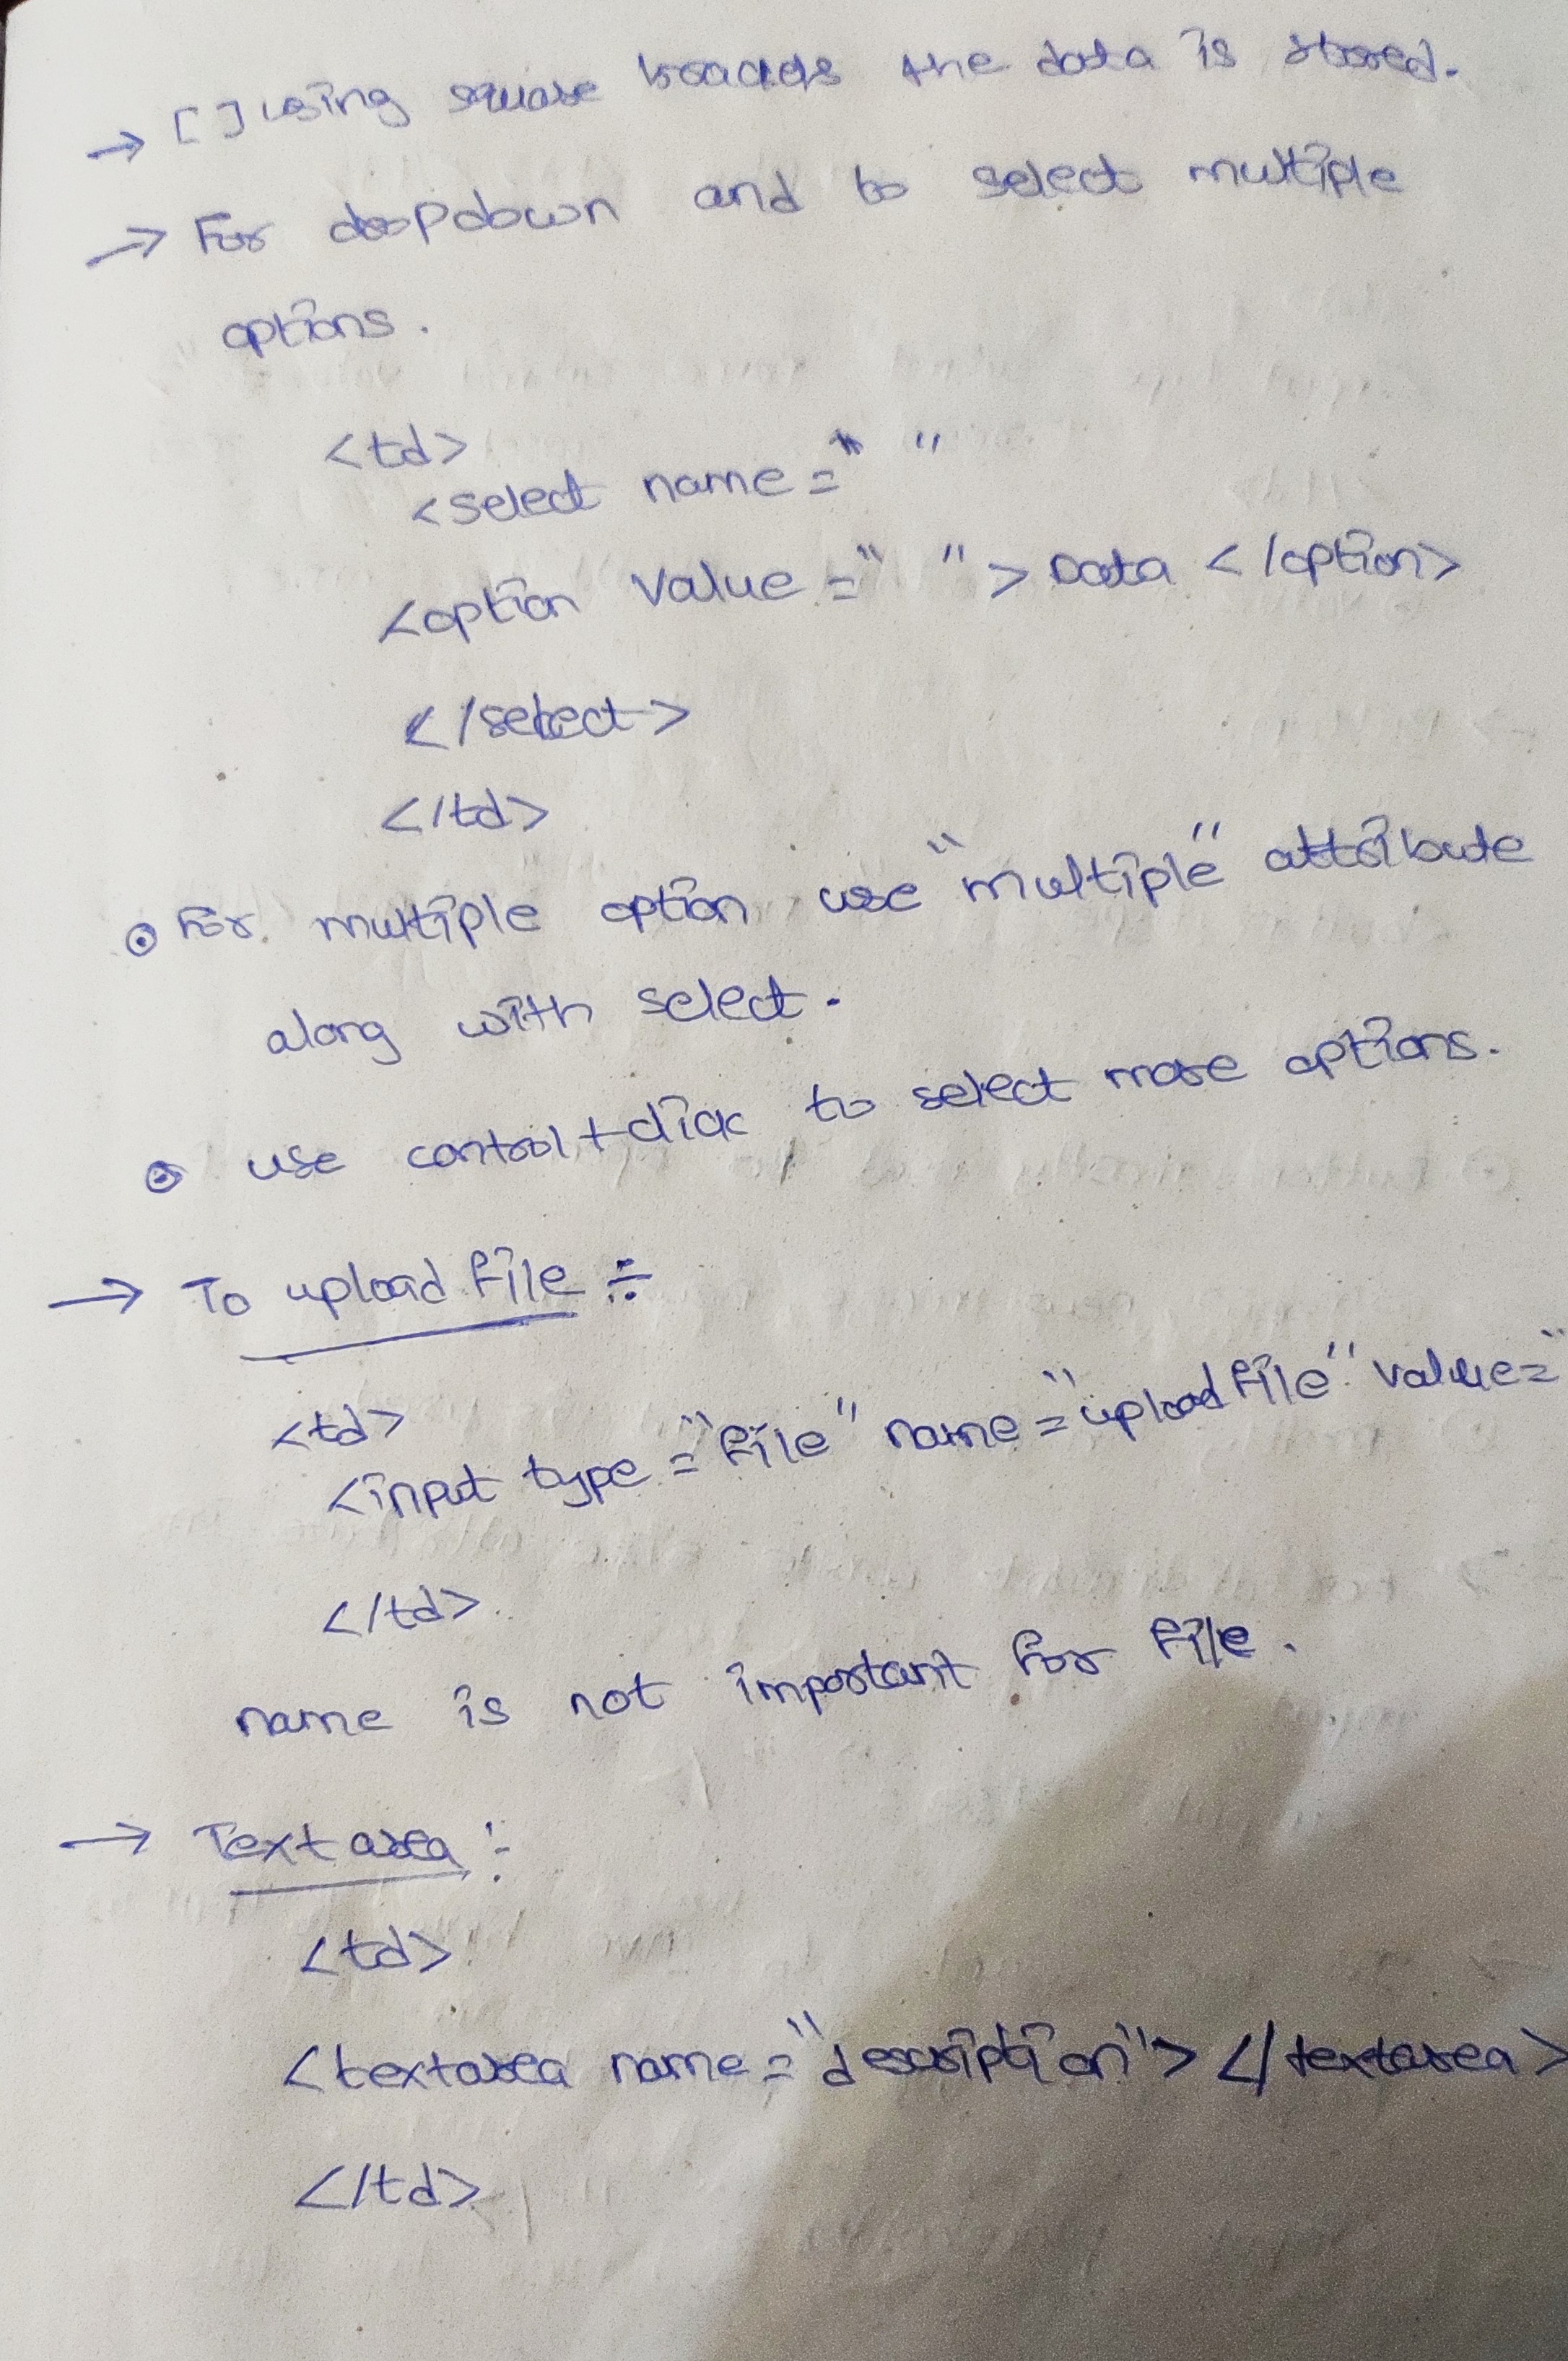 → [ ] using square brackets the data is stored.
→ For dropdown and to select multiple
options.
<td>
<select name=" "
<option value=" "> Data </option>
</select>
</td>
⊙ For multiple option use "multiple" attribute
along with select.
⊙ use control+click to select more options.
→ To upload file :-
<td>
<input type="file" name="upload file" value="
</td>
name is not important for file.
→ Text area :-
<td>
<textarea name="description"> </textarea>
</td>